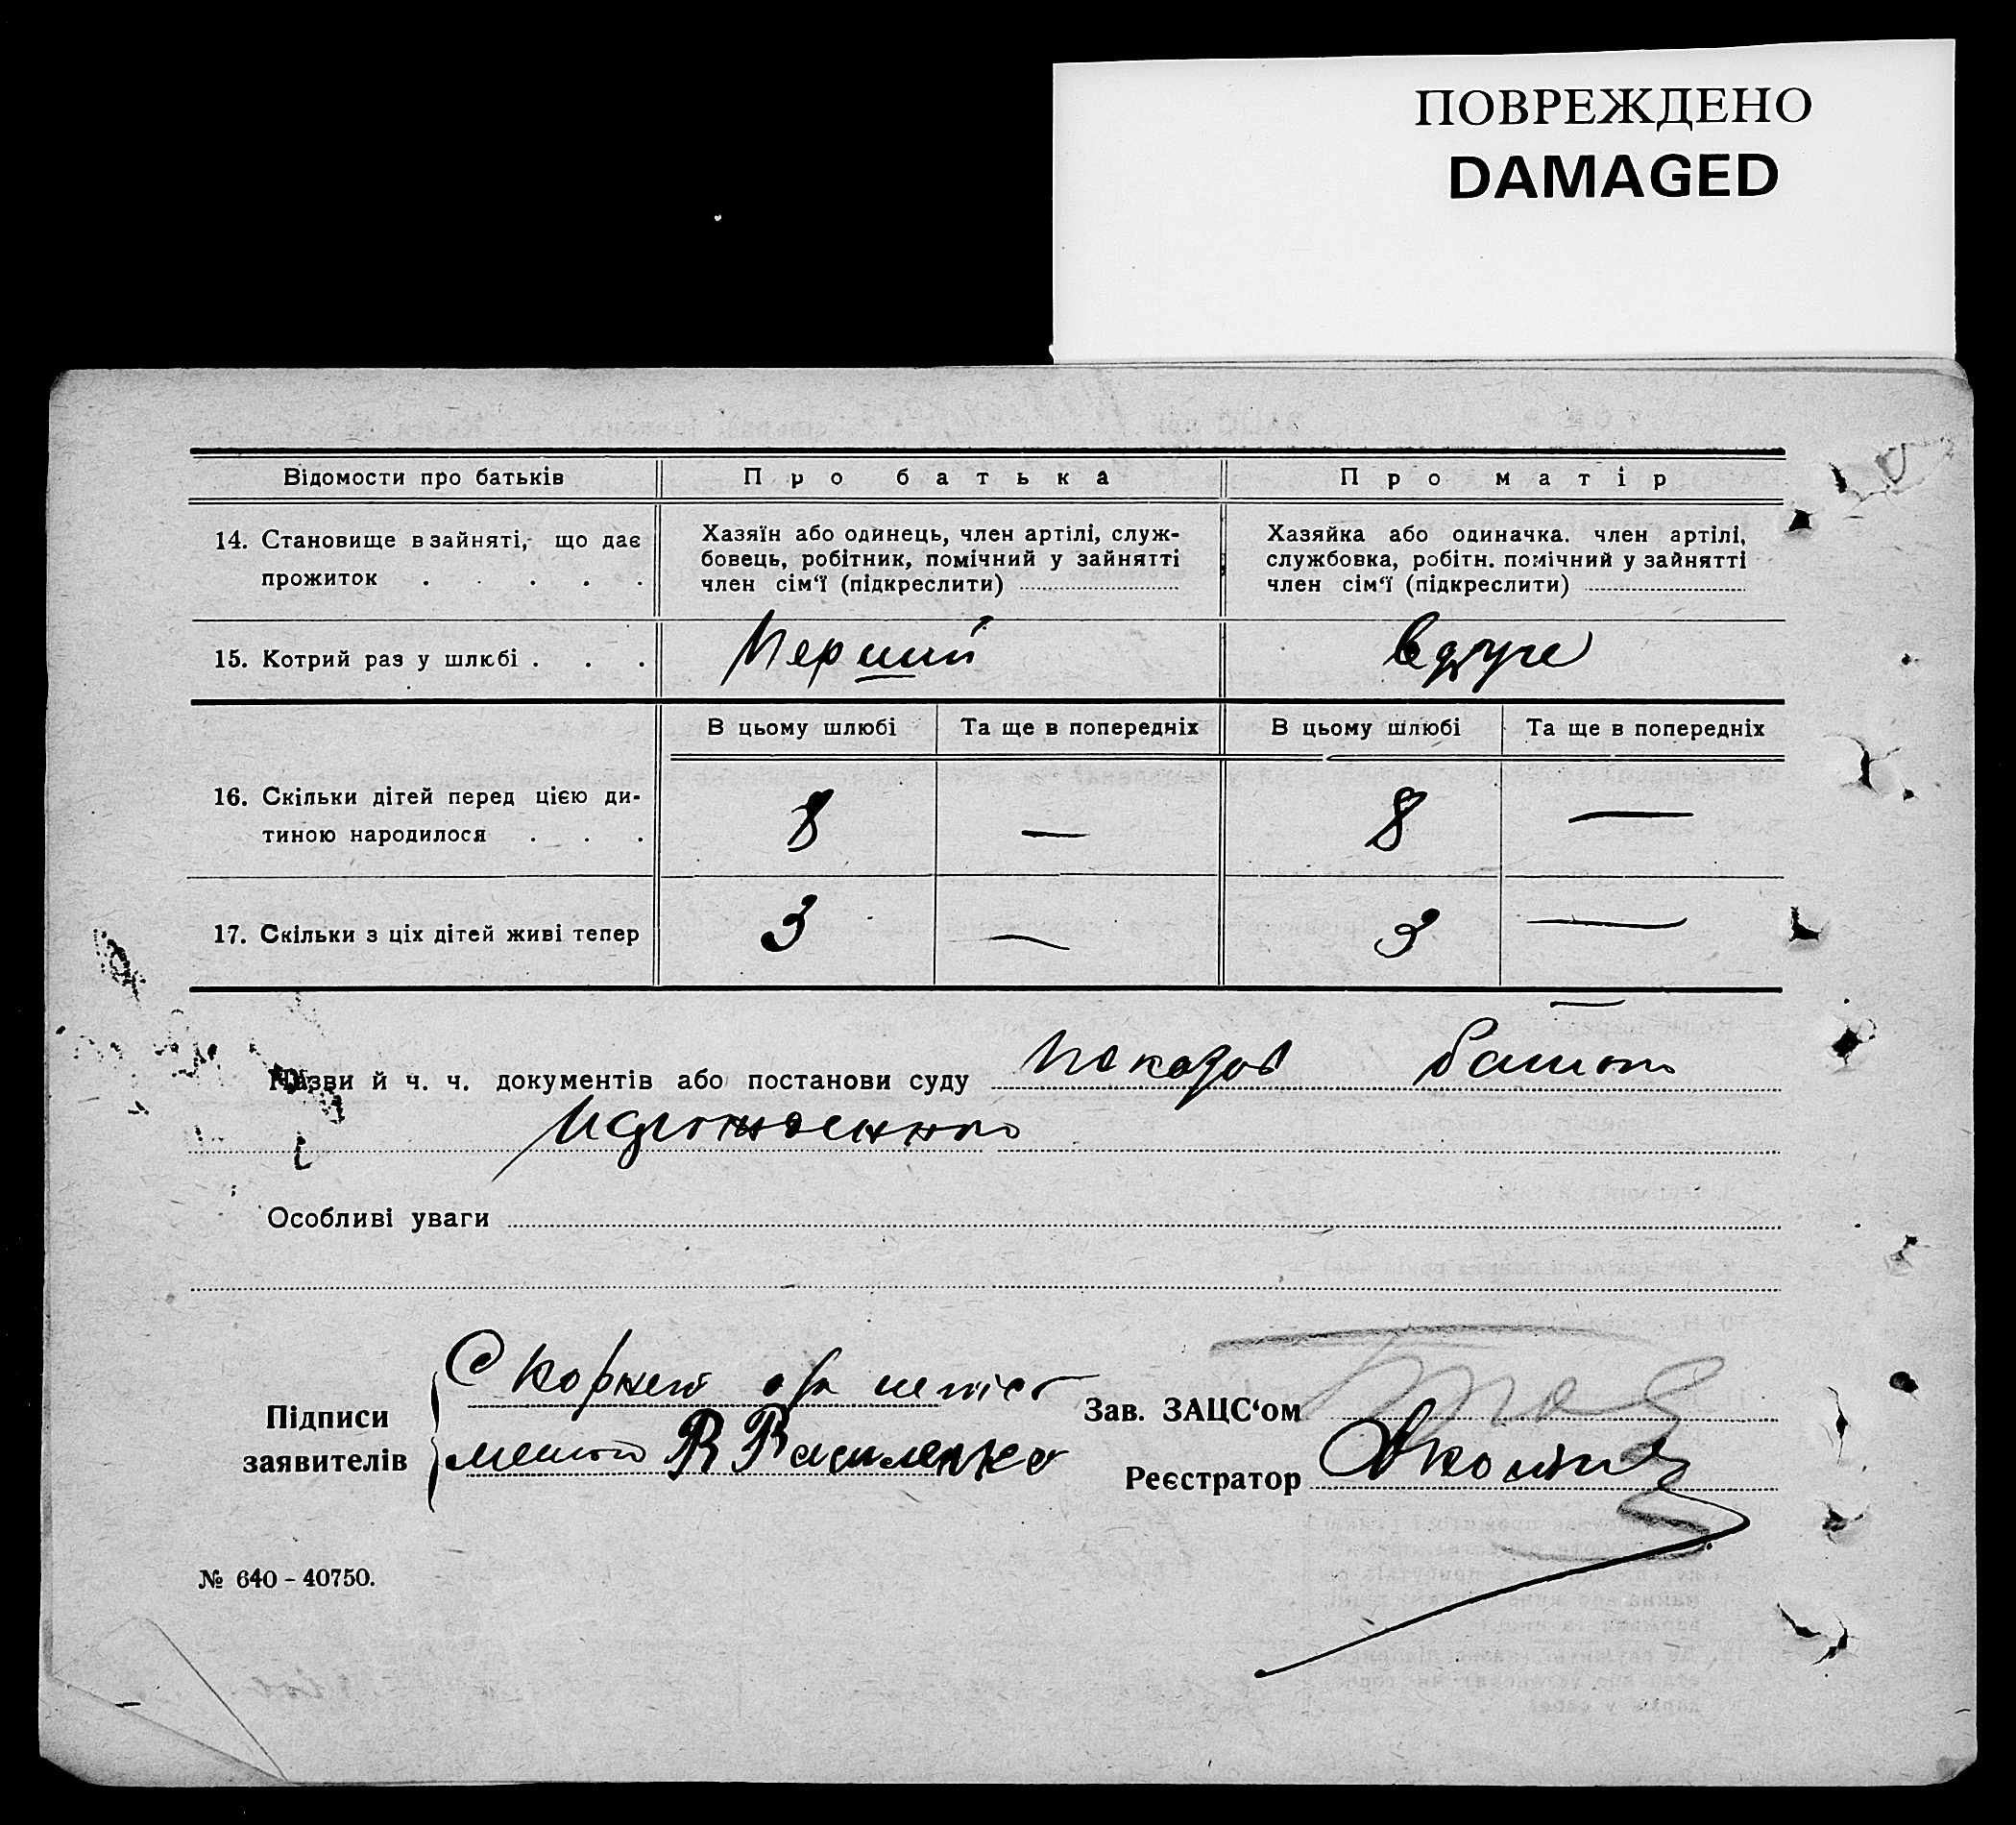 ПОВРЕЖДЕНО
DAMAGED
Відомости про батьків
Про батька
Про матір
14. Становище в зайняті, що дає
прожиток . . . . .
Хазяїн або одинець, член артілі, служ-
бовець, робітник, помічний у зайнятті
член сім‘ї (підкреслити)
Хазяйка або одиначка. член артілі,
службовка, робітн. помічний у зайнятті
член сім‘ї (підкреслити)
15. Котрий раз у шлюбі . . .
Перший
вдруге
В цьому шлюбі
Та ще в попередніх
В цьому шлюбі
Та ще в попередніх
16. Скільки дітей перед цією ди-
тиною народилося . . .
8
—
8
—
17. Скільки з ціх дітей живі тепер
3
—
3
—
Назви й ч. ч. документів або постанови суду
Особливі уваги
Підписи
заявителів
Василенко
Зав. ЗАЦС‘ом
Реєстратор
№ 640 – 40750.